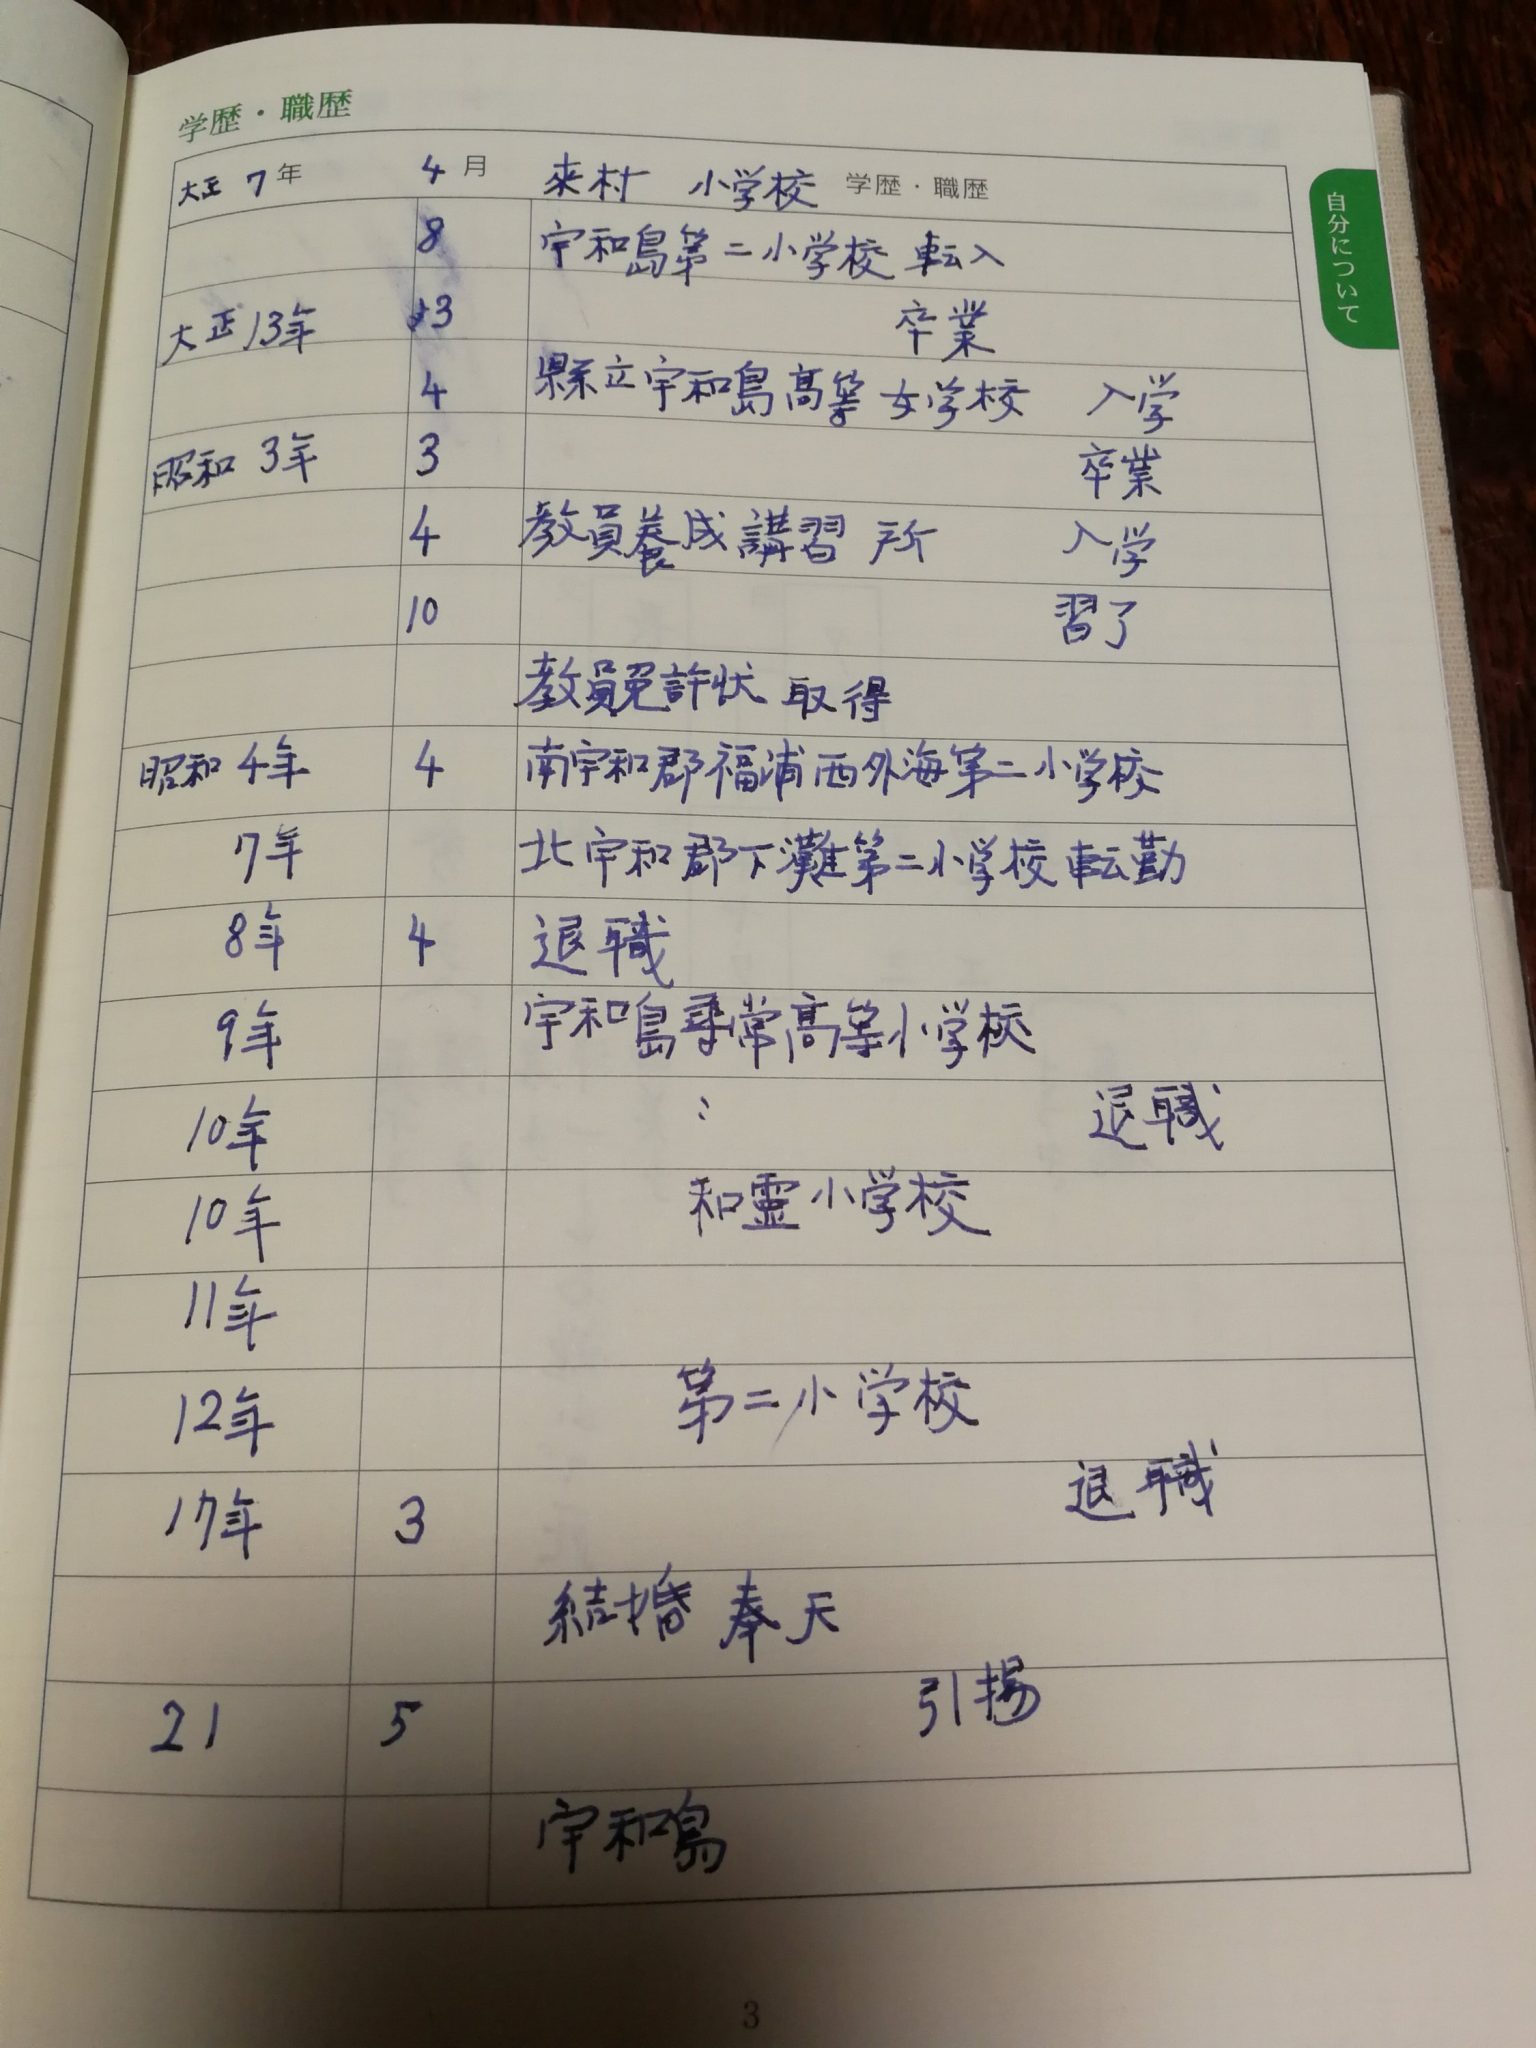 学歴・職歴
大正 7年 4月 来村 小学校 学歴・職歴
8 宇和島第二小学校 転入
大正13年 3 卒業
4 縣立宇和島高等女学校 入学
昭和 3年 3 卒業
4 教員養成講習所 入学
10 習了
教員免許状 取得
昭和 4年 4 南宇和郡福浦西外海第二小学校
7年 北宇和郡下灘第二小学校転勤
8年 4 退職
9年 宇和島尋常高等小学校
10年 〃 退職
10年 和霊小学校
11年
12年 第二小学校
17年 3 退職
結婚 奉天
21 5 引揚
宇和島
自分について
3